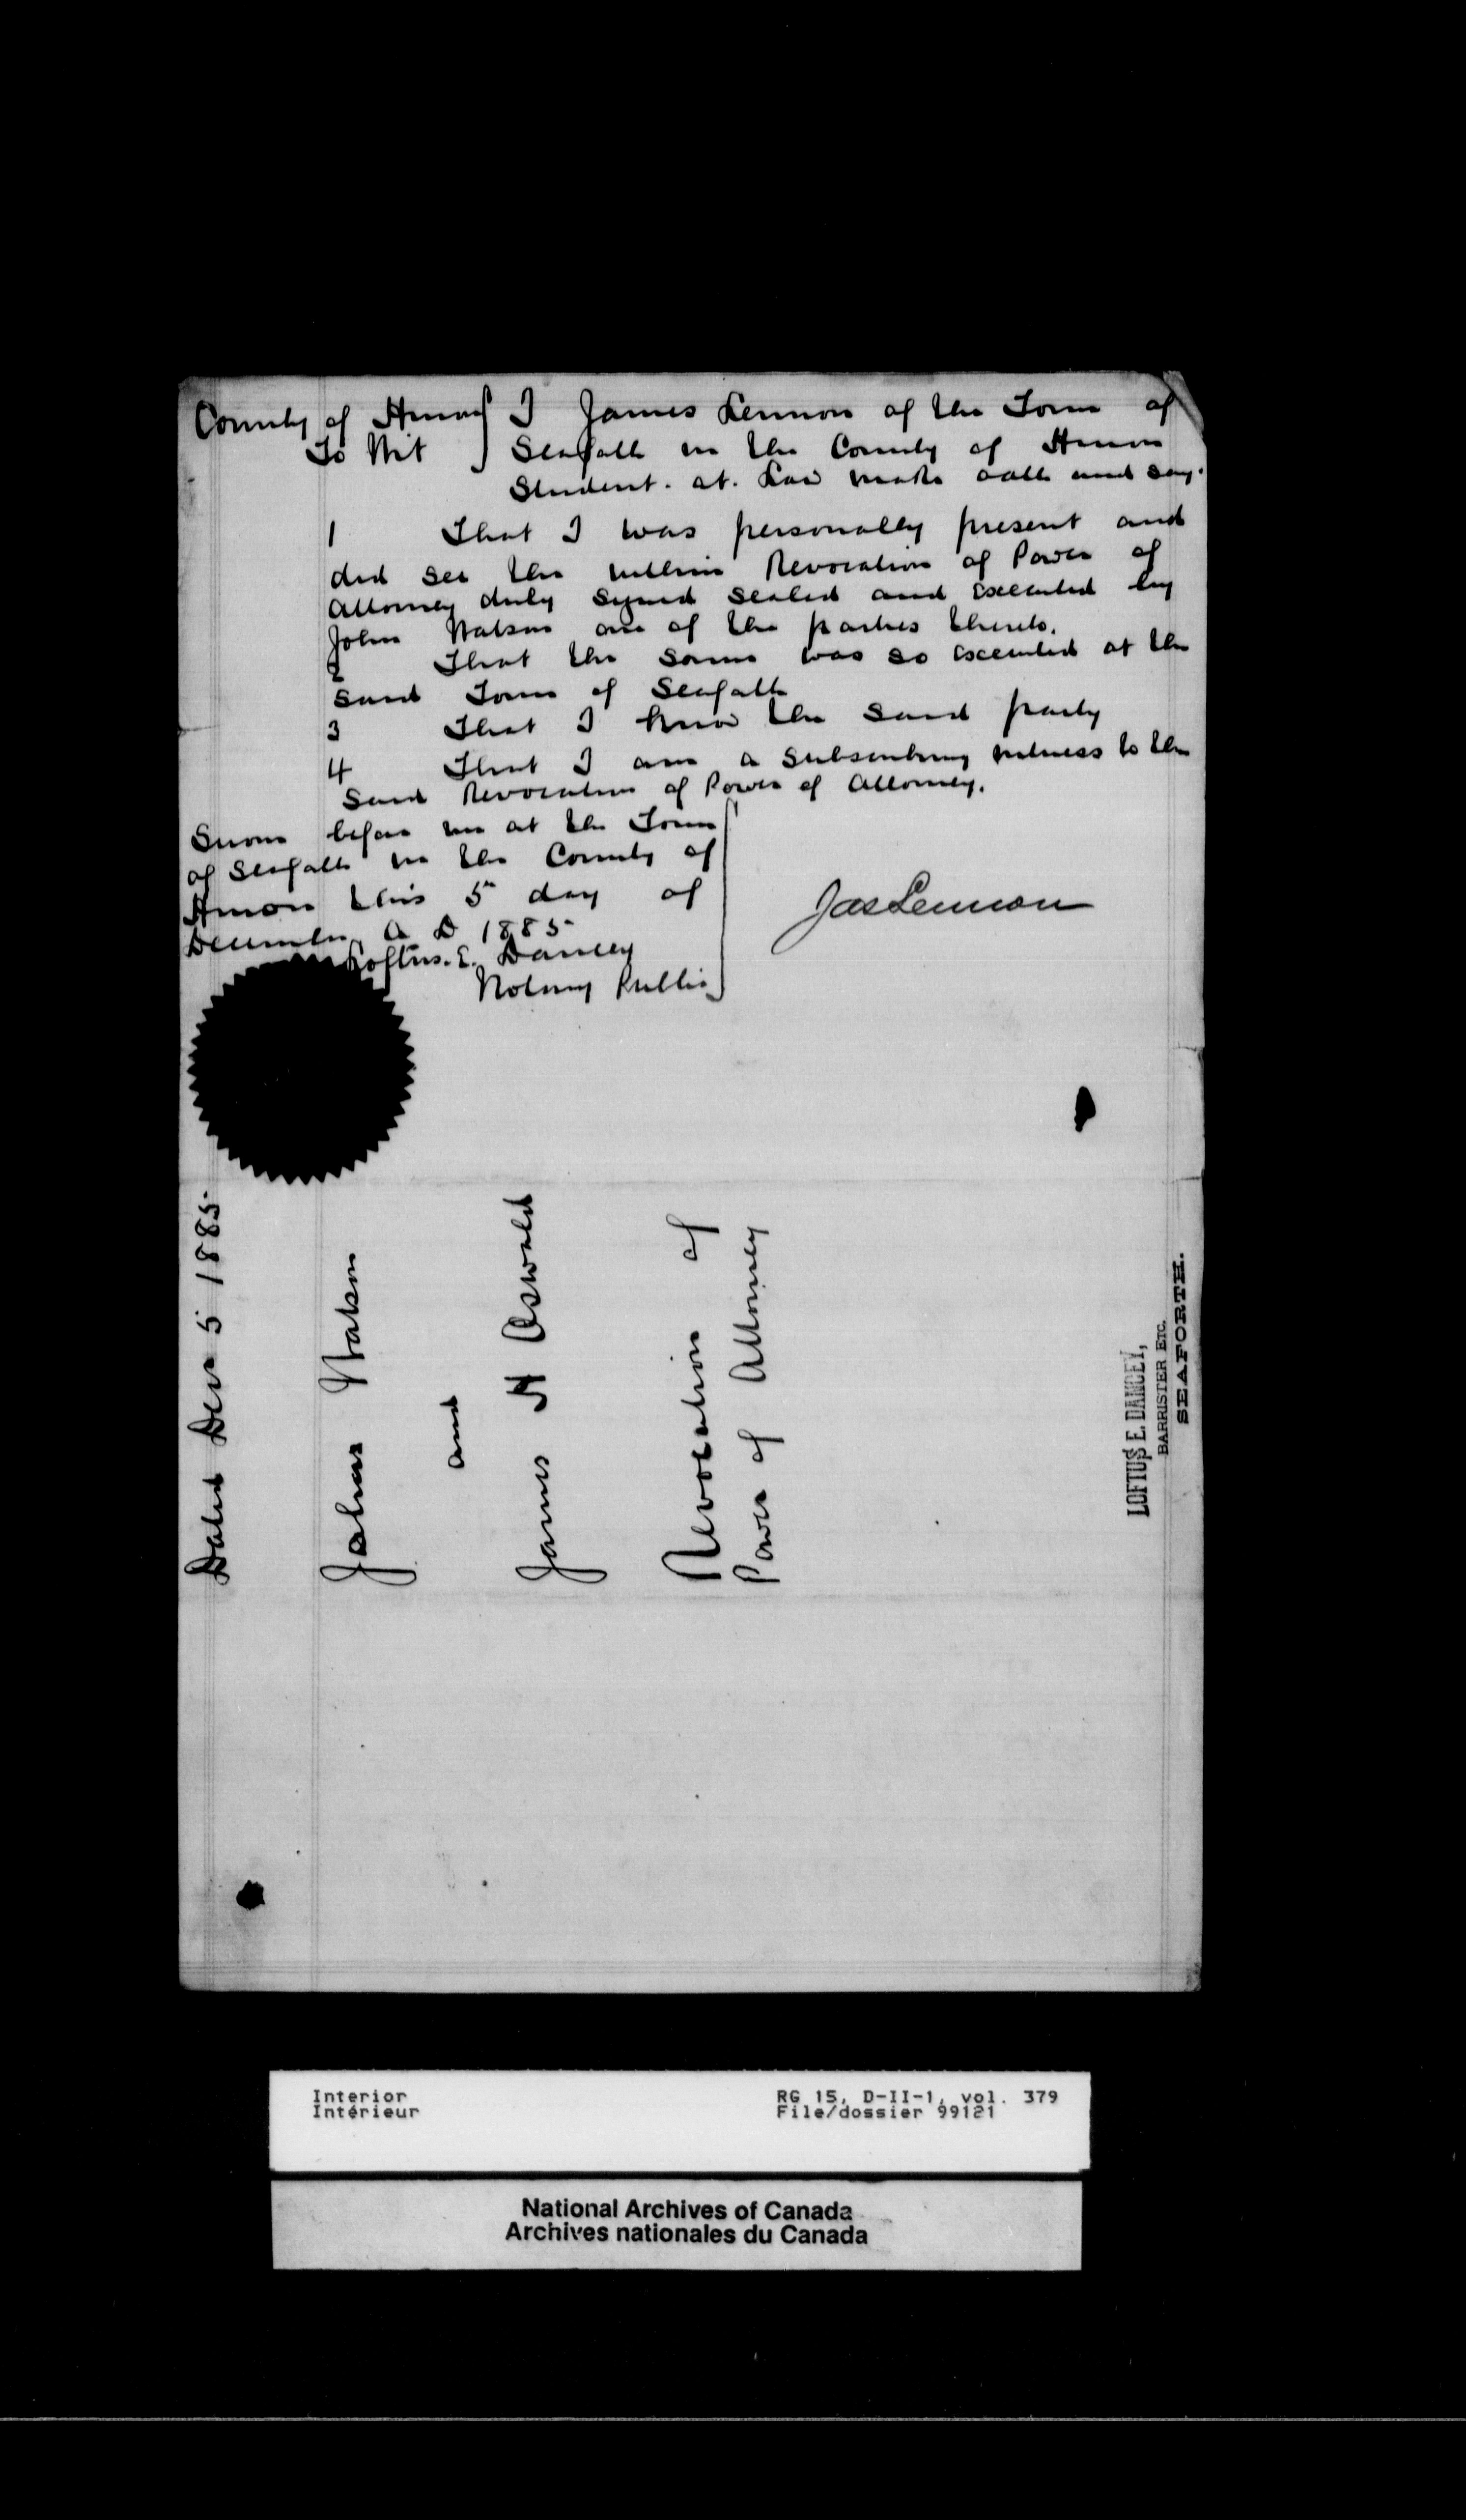 County of Huron } I James Lennon of the Town of
To Wit } Seaforth in the County of Huron
Student. at. Law make oath and say.
1 That I was personally present and
did see the within Revocation of Power of
Attorney duly signed sealed and executed by
John Watson one of the parties thereto.
2 That the same was so executed at the
said Town of Seaforth
3 That I know the said party
4 That I am a subscribing witness to the
said Revocation of Power of Attorney.
Sworn before me at the Town
of Seaforth in the County of
Huron this 5th day of
December A D 1885
Loftus. E. Dancey
Notary Public
Jas Lennon
Dated Dec 5 1885
John Watson
and
James H Oswald
Revocation of
Power of Attorney
LOFTUS E. DANCEY,
BARRISTER ETC.
SEAFORTH.
Interior
Intérieur
RG 15, D-II-1, vol. 379
File/dossier 99121
National Archives of Canada
Archives nationales du Canada